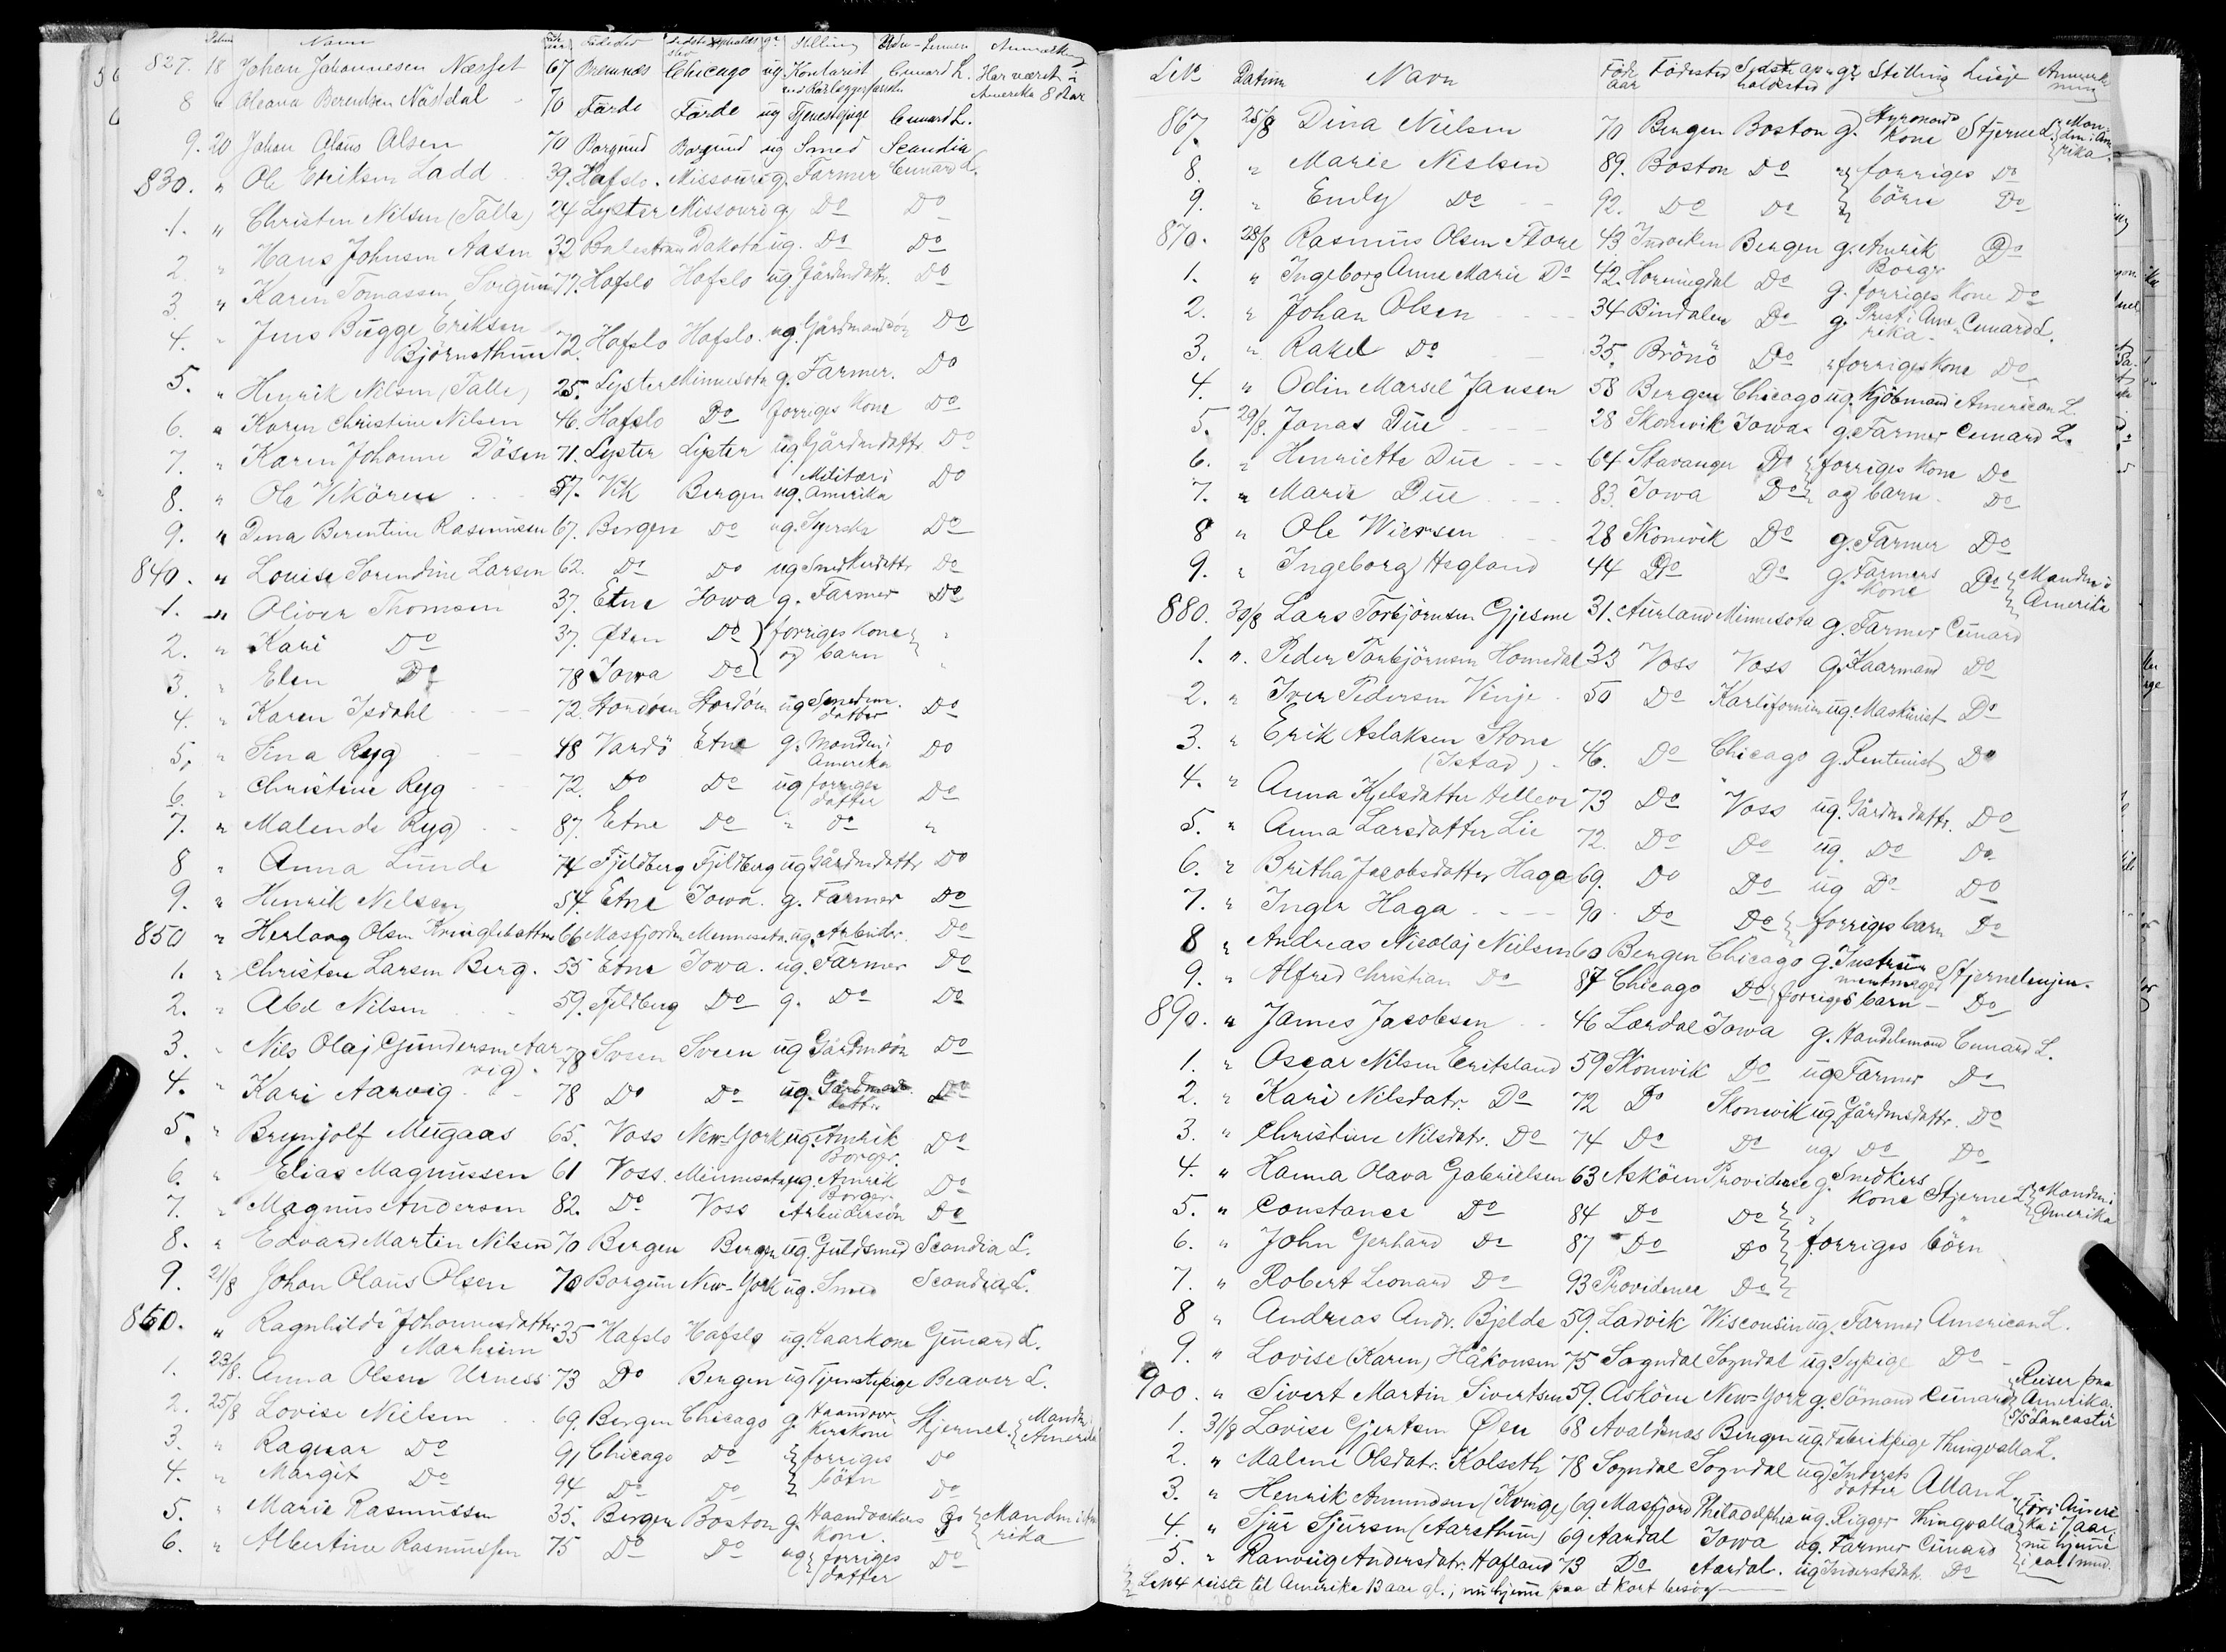 Datum Navn Föde aar Födested sidste opholds sted gr Stilling Udv-Linien Anmærkning
827. 18 Johan Johannesen Næsset 67 Bremnæs Chicago ug Kontorist Cunard L. Har været i Amerika 8 Aar
8 " Oleana Berentsen Nasdal 70 Förde Förde ug Tjenestepige Cunard L.
9. 20 Johan Olaus Olsen 70 Borgund Borgund ug Smed Scandia
830. " Ole Eriksen Ladd 39. Hafslo. Missouri g. Farmer Cunard L.
1. " Christen Nilsen (Talle) 24 Lyster Missouri g. Do Do
2. " Hans Johnsen Aasen 32 Balestran Dakota ug. Do Do
3. " Karen Tomassen Sorgum 77. Hafslo Hafslo ug. Gårdmdattr. Do
4. " Jens Bugge Eriksen Björnethun 72. Hafslo Hafslo. ug. Gårdmandsön Do
5. " Henrik Nilsen (Talle) 25. Lyster Minnesota g. Farmer. Do
6. " Karen Christine Nilsen 46. Hafslo Do forriges Kone Do
7. " Karen Johanne Dösen 71. Lyster Lyster ug Gårdmdattr Do
8. " Ole Vikören 57. Vik Bergen ug. Militær i Amerika Do
9. " Dina Berentine Rasmussen 67. Bergen Do ug. Syerske Do
840. " Louise Sorendine Larsen 62. Do Do ug Snedkerdattr Do
1. " Oliver Thomsen 37. Etne Iowa g. Farmer Do
2. " Kari Do 37. Østen Do } forriges Kone "
3. " Elen Do 78 Iowa Do } og barn "
4. " Karen Isdahl 72. Stordöen Stordöen ug Smedm. datter Do
5. " Sina Ryg 48 Vardö Etne g. Manden i Amerika Do
6. " Christine Ryg 72. Do Do ug forriges datter Do
7. " Malende Ryg 87. Etne Do " Do "
8 " Anna Lunde 74 Fjeldberg Fjeldberg ug Gårdmdattr Do
9. " Henrik Nelsen 54. Etne Iowa. g. Farmer Do
850 " Herlaug Olsen Kringlebotten 66 Masfjorden Minnesota. ug. Arbeider. Do
1. " Christen Larsen Berg. 55 Etne Iowa. ug. Farmer Do
2. " Abel Nilsen 59. Fjeldberg Do g. Do Do
3. " Nils Olaj Gundersen Aarvig. 78 Sveen Sveen ug Gårdmsön Do
4. " Kari Aarvig 78 Do Do ug. Gårdmands dattr. Do
5. " Brynjolf Mugaas 65. Voss New-York ug. Amrik Borger. Do
6. " Elias Magnussen 61 Voss. Minnesota ug. Amrik Borger Do
7. " Magnus Andersen 82. Do Voss Arbeidersön Do
8. " Edvard Martin Nilsen 70 Bergen Bergen ug. Guldsmed Scandia L.
9. 21/8 Johan Olaus Olsen 70 Borgun New-York ug. Smed Scandia L.
860. " Ragnhilde Johannesdatter Marheim 35 Hafslo Hafslo ug. Kaarkone Cunard L.
1. 23/8. Anna Olsen Urness 73 Do Bergen ug Tjenestepige Beaver L.
2. 25/8 Lovise Nielsen 69. Bergen Chicago g. Haandverkerskone Stjernel. { Manden i Amerika
3. " Ragnar Do 91 Chicago Do } forriges Do
4. " Margit Do 94 Do Do } börn Do
5. " Marie Rasmussen 35. Bergen Boston g. Haandværkers kone. Do { Manden i Amerika
6. " Albertine Rasmussen 75 Do Do ug { forriges datter Do
L.No Datum Navn Föde aar Födested Sidste opholdssted gr Stilling Linje Anmerkning
867. 25/8 Dina Nielsen 70 Bergen Boston g. Styrmands kone Stjerne L { Manden i Amerika
8. " Marie Nielsen 89. Boston Do } forriges Do
9. " Emly Do 92. Do Do } börn Do
870. 28/8 Rasmus Olsen Flore 43 Indviken Bergen g. Amrik Borger Do
1. " Ingeborg Anne Marie Do 42. Horningdal Do g. forriges Kone Do
2. " Johan Olsen 34 Bindalen Do g. Prest i Amerika Cunard L.
3. " Rakel Do 35. Brönö Do " forriges Kone Do
4. " Odin Marsel Jansen 58 Bergen Chicago ug. Kjöbmand American L.
5. 29/8. Jonas Due 28 Skonevik Iowa g. Farmer Cunard L.
6. " Henriette Due 64 Stavanger Do } forriges Kone Do
7. " Marie Due 83. Iowa Do } og barn. Do
8 " Ole Wiersen 28 Skonevik Do g. Farmer Do
9. " Ingeborg Hegland 44 Do Do g. Farmers Kone Do { Manden i Amerika
880. 30/8 Lars Torbjörnsen Gjesme 31. Aurland Minnesota g. Farmer Cunard
1. ". Peder Torbjörnsen Homedal 33 Voss Voss g. Kaarmand Do
2. " Iver Pedersen Vinje 50 Do Karlifornien ug. Maskinist Do
3. " Erik Aslaksen Stone (Istad) 46. Do Chicago g. Rentenist Do
4. " Anna Kjelsdatter Helleve 73 Do Voss ug. Gårdmdattr. Do
5. " Anna Larsdatter Lie 72. Do Do ug. Do Do
6. " Britha Jacobsdatter Haga 69. Do Do ug Do Do
7. " Inger Haga 90. Do Do } forriges barn Do
8 " Andreas Nicolaj Nielsen 60 Bergen Chicago g. Instrumentmager Stjernelinjen.
9. " Alfred Christian Do 87 Chicago Do } forriges barn – Do
890. " James Jacobsen 46 Lærdal Iowa g. Handelsmand Cunard L.
1. " Oscar Nilsen Eritsland 59 Skonevik Do ug Farmer Do
2. " Kari Nilsdatr. Do 72 Do Skonevik ug Gårdmsdattr. Do
3. " Christine Nilsdatr. Do 74 Do Do ug Do Do
4. " Hanna Olava Gabrielsen 63 Asköen Providense g. Snedkers Kone Stjerne L { Manden i Amerika
5. " Constance Do 84 Do Do } " "
6. " John Gerhard Do 87 Do Do } forriges börn
7. " Robert Leonard Do 93 Providence Do }
8 " Andreas Andr. Bjelde 59. Ladvik Wisconsin ug. Farmer American L.
9. " Lovise (Karen) Håkonsen 75 Sogndal Sogndal ug. Sypige Do
900. " Sivert Martin Sivertsen 59. Asköen New-York g. Sömand Cunard { Reiser paa Amerika. S/S Lancaster
1. 31/8 Lovise Gjertsen Øen 68 Avaldsnæs Bergen ug. Fabrikpige Thingvalla L.
2. " Malene Olsdatr. Kolseth 78 Sogndal Sogndal ug Inderts datter Allan L
3. " Henrik Amundsen (Kvinge) 69. Masfjord Philadelphia ug. Rigger Thingvalla { Før i Amerika i 7 aar,
4. " Sjur Sjursen (Aarethun) 69 Aardal Iowa ug. Farmer Cunard { nu hjemme
5. " Ranveig Andersdatr. Hofland 73 Do Aardal. ug Inderstsdat. Do { i ca. 1 mnd.
L.N 4 reiste til Amerika 13 aar gl.; nu hjeme paa et kort besög